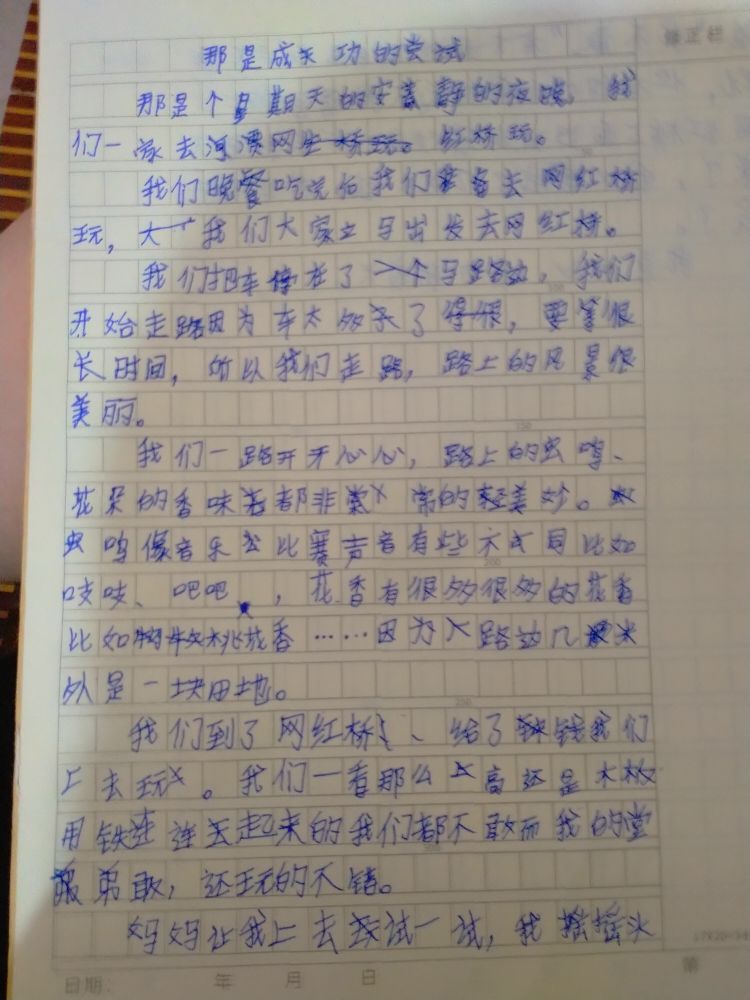 那是成功的尝试
那是个星期天的安静的夜晚，我
们一家去河滨网红桥玩。
我们晚餐吃完后我们准备去网红桥
玩，我们大家立马出发去网红桥。
我们把车停在了一个马路边，我们
开始走路因为车太多了，要等很
长时间，所以我们走路，路上的风景很
美丽。
我们一路开开心心，路上的虫鸣、
花朵的香味都非常的轻美妙。
虫鸣像音乐比赛声音有些不同比如
吱吱、吧吧，花香有很多很多的花香
比如桃花香……因为路边几米
外是一块田地。
我们到了网红桥、给了钱我们
上去玩。我们一看那么高还是木板
用铁连连丢起来的我们都不敢而我的堂
弟敢，还玩的不错。
妈妈让我上去试一试，我摇摇头
日期：年 月 日
第
修正栏